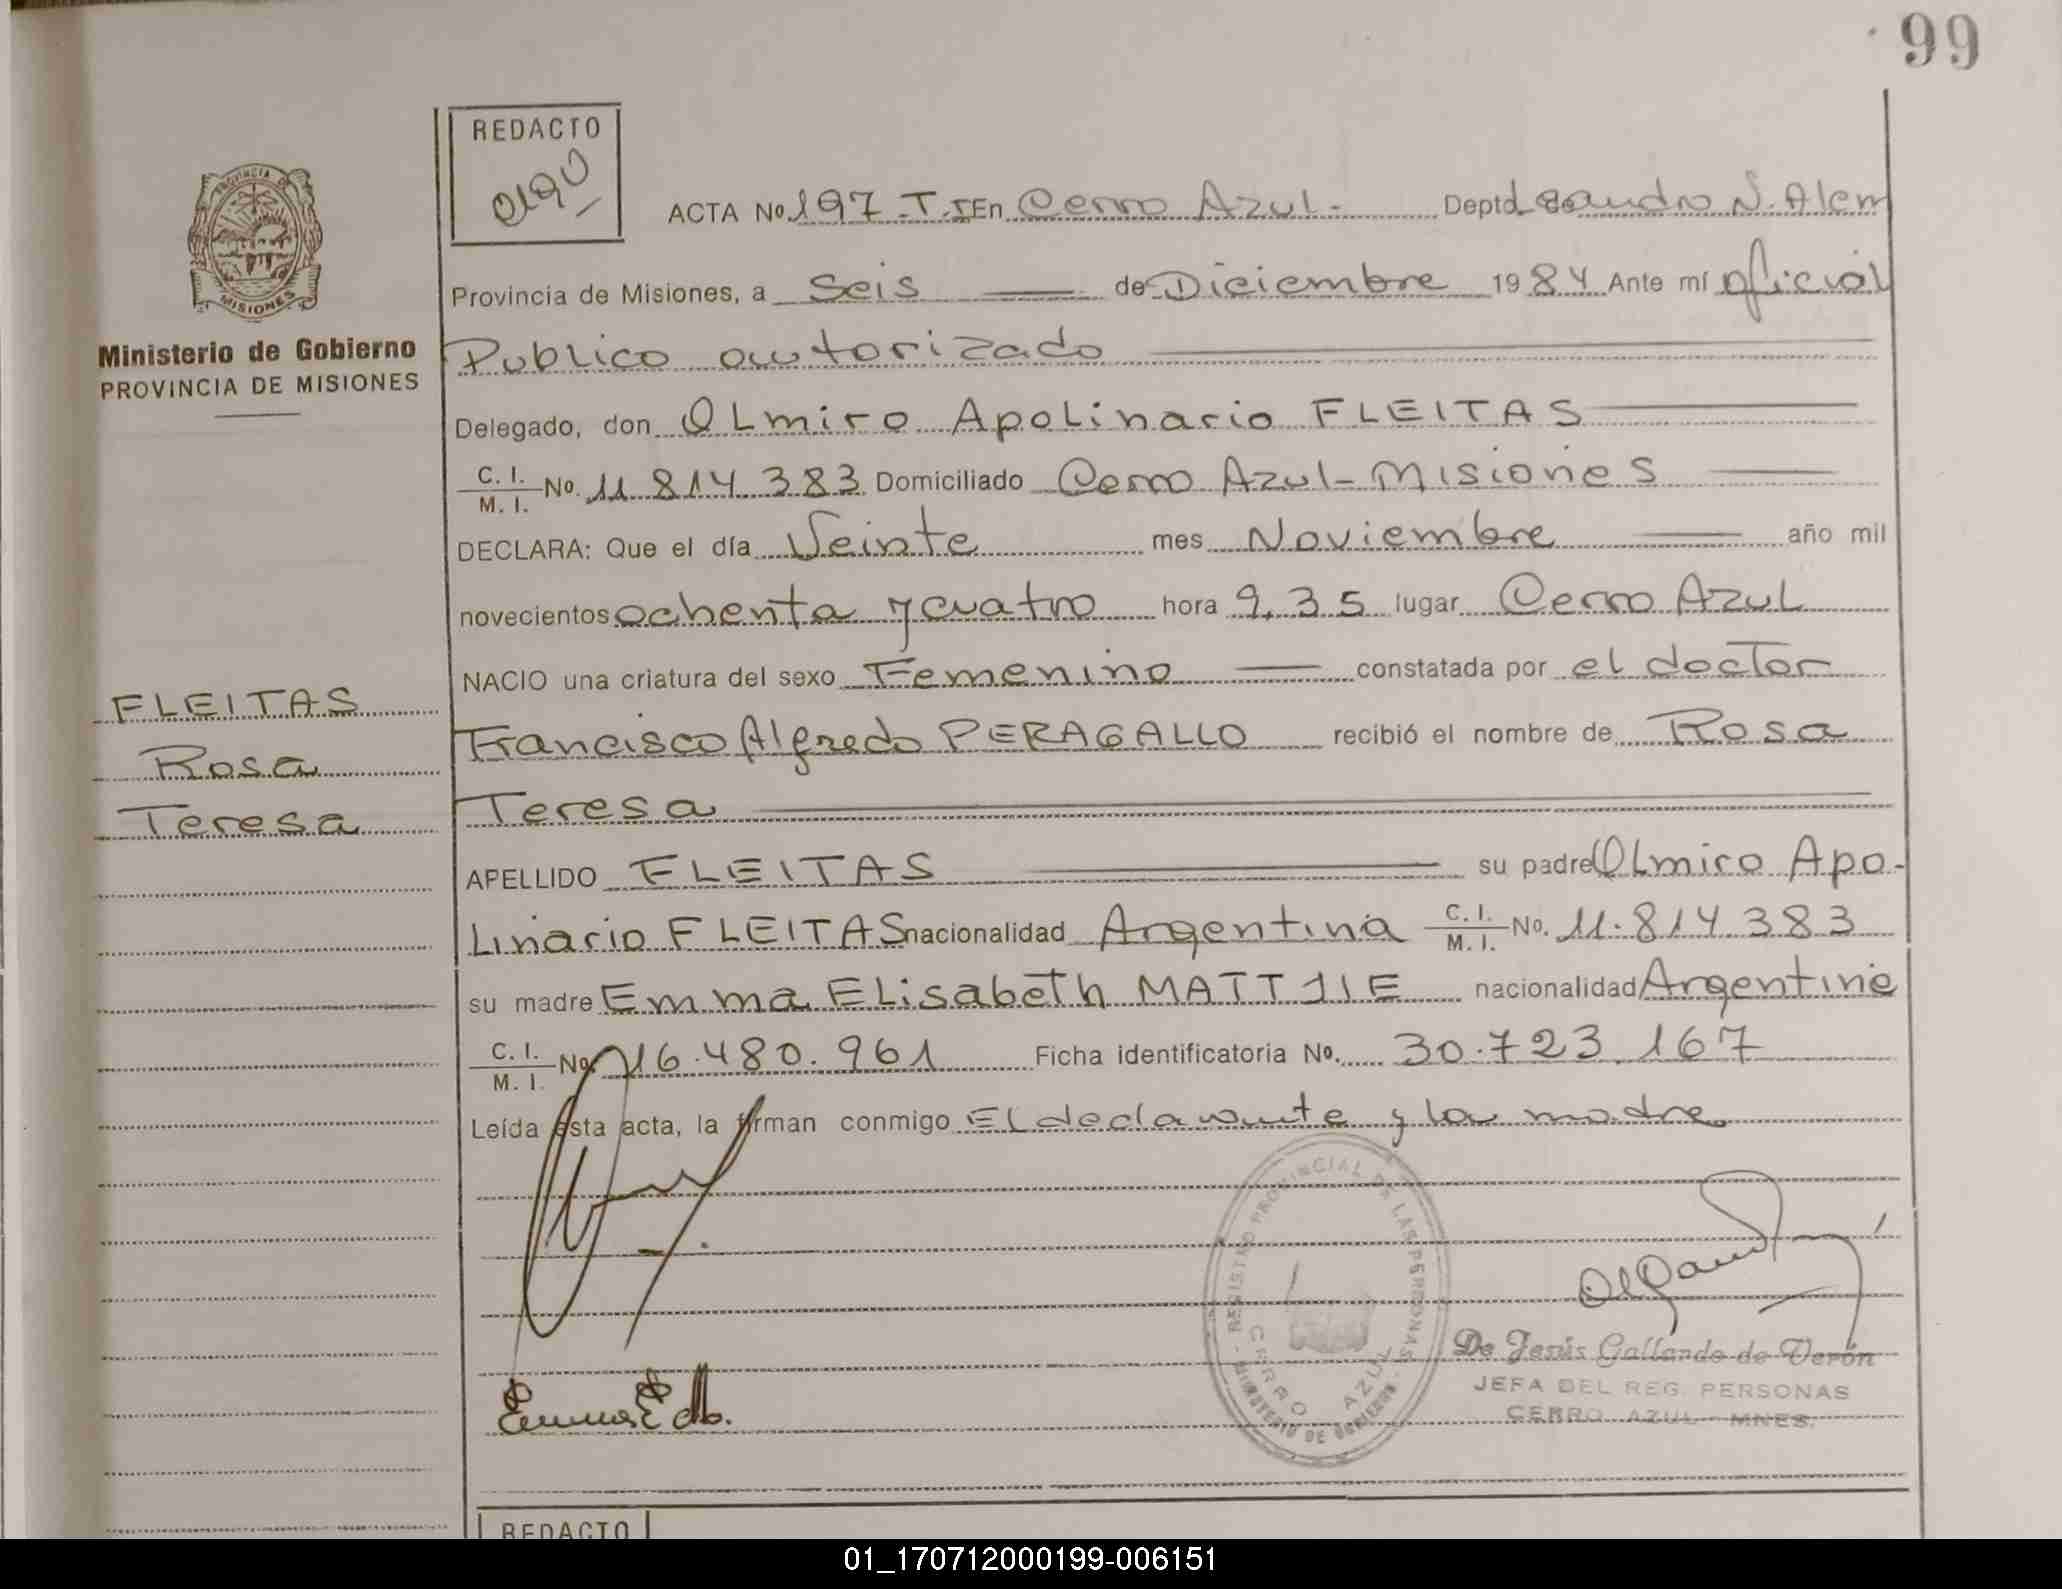 99
REDACTO
ACTA No. 197. T. I En Cerro Azul.- Deptd. Leandro N. Alem
PROVINCIA DE
MISIONES
Provincia de Misiones, a Seis de Diciembre 1984 Ante mí oficial
Ministerio de Gobierno
PROVINCIA DE MISIONES
Publico autorizado
Delegado, don OLmiro ApoLinario FLEITAS
C. I. / M. I. No. 11.814.383 Domiciliado Cerro AzuL-MISioneS
DECLARA: Que el día Veinte mes Noviembre año mil
novecientos ochenta y cuatro hora 9,35 lugar Cerro AzuL
NACIO una criatura del sexo Femenino constatada por el doctor
FLEITAS
Rosa
Teresa
Francisco Alfredo PERAGALLO recibió el nombre de Rosa
Teresa
APELLIDO FLEITAS su padre OLmiro Apo-
Linario FLEITAS nacionalidad Argentina C. I. / M. I. No. 11.814.383
su madre Emma ELisabeth MATTJIE nacionalidad Argentina
C. I. / M. I. No. 16.480.961 Ficha identificatoria No. 30.723.167
Leída esta acta, la firman conmigo EL declarante y la madre
REGISTRO PROVINCIAL DE LAS PERSONAS
CERRO AZUL
MINISTERIO DE GOBIERNO
De Jesús Gallardo de Verón
JEFA DEL REG. PERSONAS
CERRO AZUL - MNES.
Emma E. M.
REDACTO
01_170712000199-006151